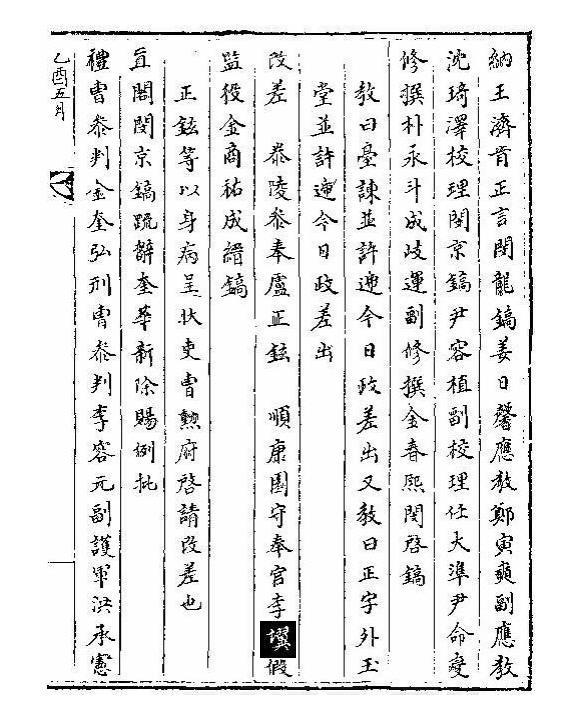 納王濟肯正言閔龍鎬姜日馨應敎鄭寅奭副應敎
沈琦澤校理閔京鎬尹容植副校理任大準尹命夔
修撰朴永斗成岐運副修撰金春熙閔啓鎬
敎曰臺諫並許遆今日政差出又敎曰正字外玉
堂並許遆今日政差出
改差　泰陵叅奉盧正鉉　順康園守奉官李墣假
監役金商祐成縉鎬
正鉉等以身病呈狀吏曹勲府啓請改差也
直閣閔京鎬䟽辭奎華新除賜例批
禮曹叅判金奎弘刑曹叅判李容元副護軍洪承憲
乙酉五月